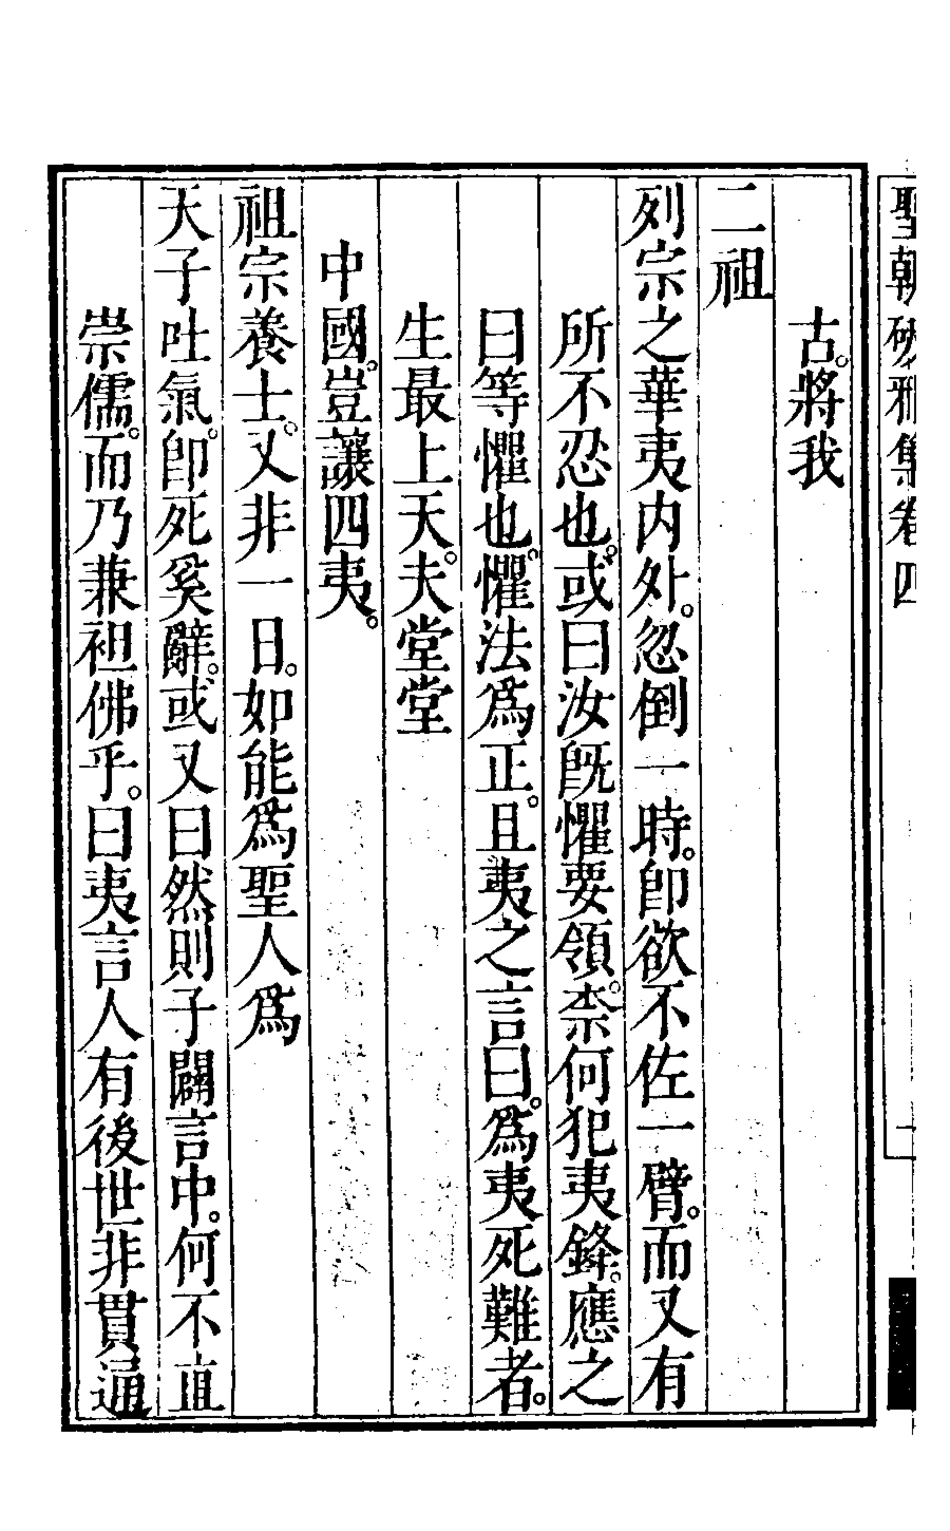 聖朝破邪集卷四
古。將我
二祖
列宗之華夷内外。忽倒一時。卽欲不佐一臂。而又有
所不忍也。或曰汝旣懼要領。柰何犯夷鋒。應之
曰等懼也。懼法爲正。且夷之言曰。爲夷死難者。
生最上天。夫堂堂
中國。豈讓四夷。
祖宗養士。又非一日。如能爲聖人爲
天子吐氣。卽死奚辭。或又曰然則子闢言中。何不直
崇儒。而乃兼袒佛乎。曰夷言人有後世非貫通